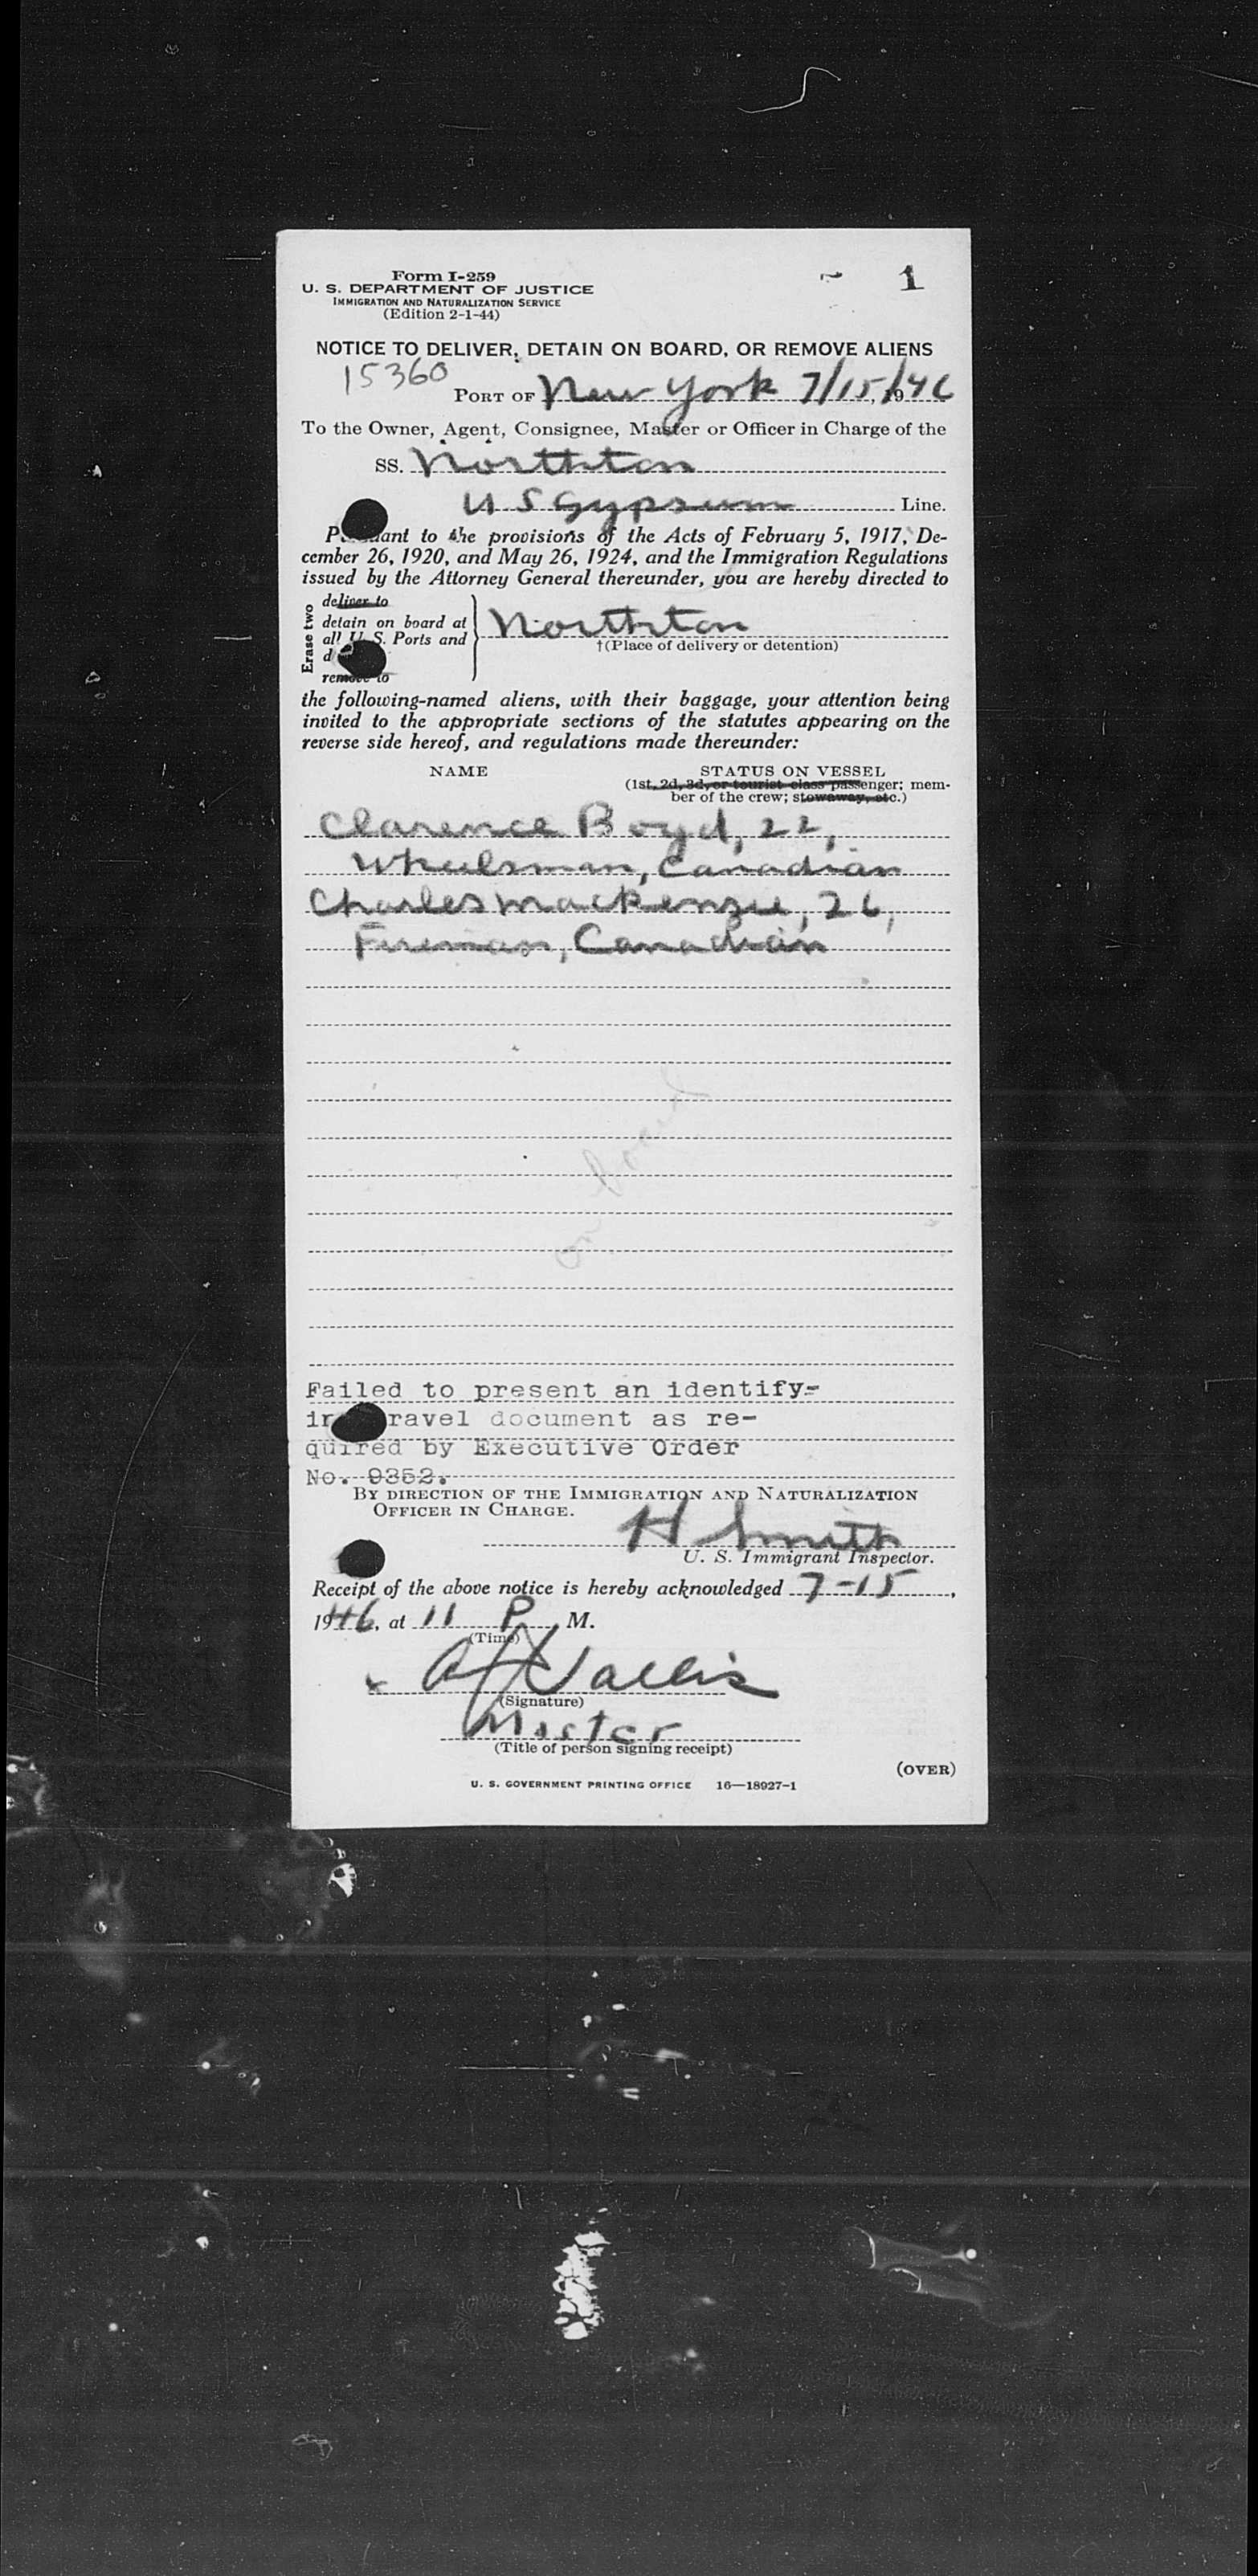 Form I-259
U. S. DEPARTMENT OF JUSTICE
IMMIGRATION AND NATURALIZATION SERVICE
(Edition 2-1-44)
1
NOTICE TO DELIVER, DETAIN ON BOARD, OR REMOVE ALIENS
15360
PORT OF New York 7/15/, 1946
To the Owner, Agent, Consignee, Master or Officer in Charge of the
SS. Northton
U S Gypsum Line.
to the provisions of the Acts of February 5, 1917, De-
cember 26, 1920, and May 26, 1924, and the Immigration Regulations
issued by the Attorney General thereunder, you are hereby directed to
Erase two
deliver to
detain on board at
all U. S. Ports and
remove to
Northton
†(Place of delivery or detention)
the following-named aliens, with their baggage, your attention being
invited to the appropriate sections of the statutes appearing on the
reverse side hereof, and regulations made thereunder:
NAME STATUS ON VESSEL
(1st, 2d, 3d, or tourist class passenger; mem-
ber of the crew; stowaway, etc.)
Clarence Boyd, 22,
Wheelsman, Canadian
Charles Mackenzie, 26,
Fireman, Canadian
on board
Failed to present an identify-
ravel document as re-
quired by Executive Order
No. 9352.
BY DIRECTION OF THE IMMIGRATION AND NATURALIZATION
OFFICER IN CHARGE.
H Smith
U. S. Immigrant Inspector.
Receipt of the above notice is hereby acknowledged 7-15,
1946, at 11 P M.
(Time)
x
(Signature)
Master
(Title of person signing receipt)
(OVER)
U. S. GOVERNMENT PRINTING OFFICE 16—18927-1